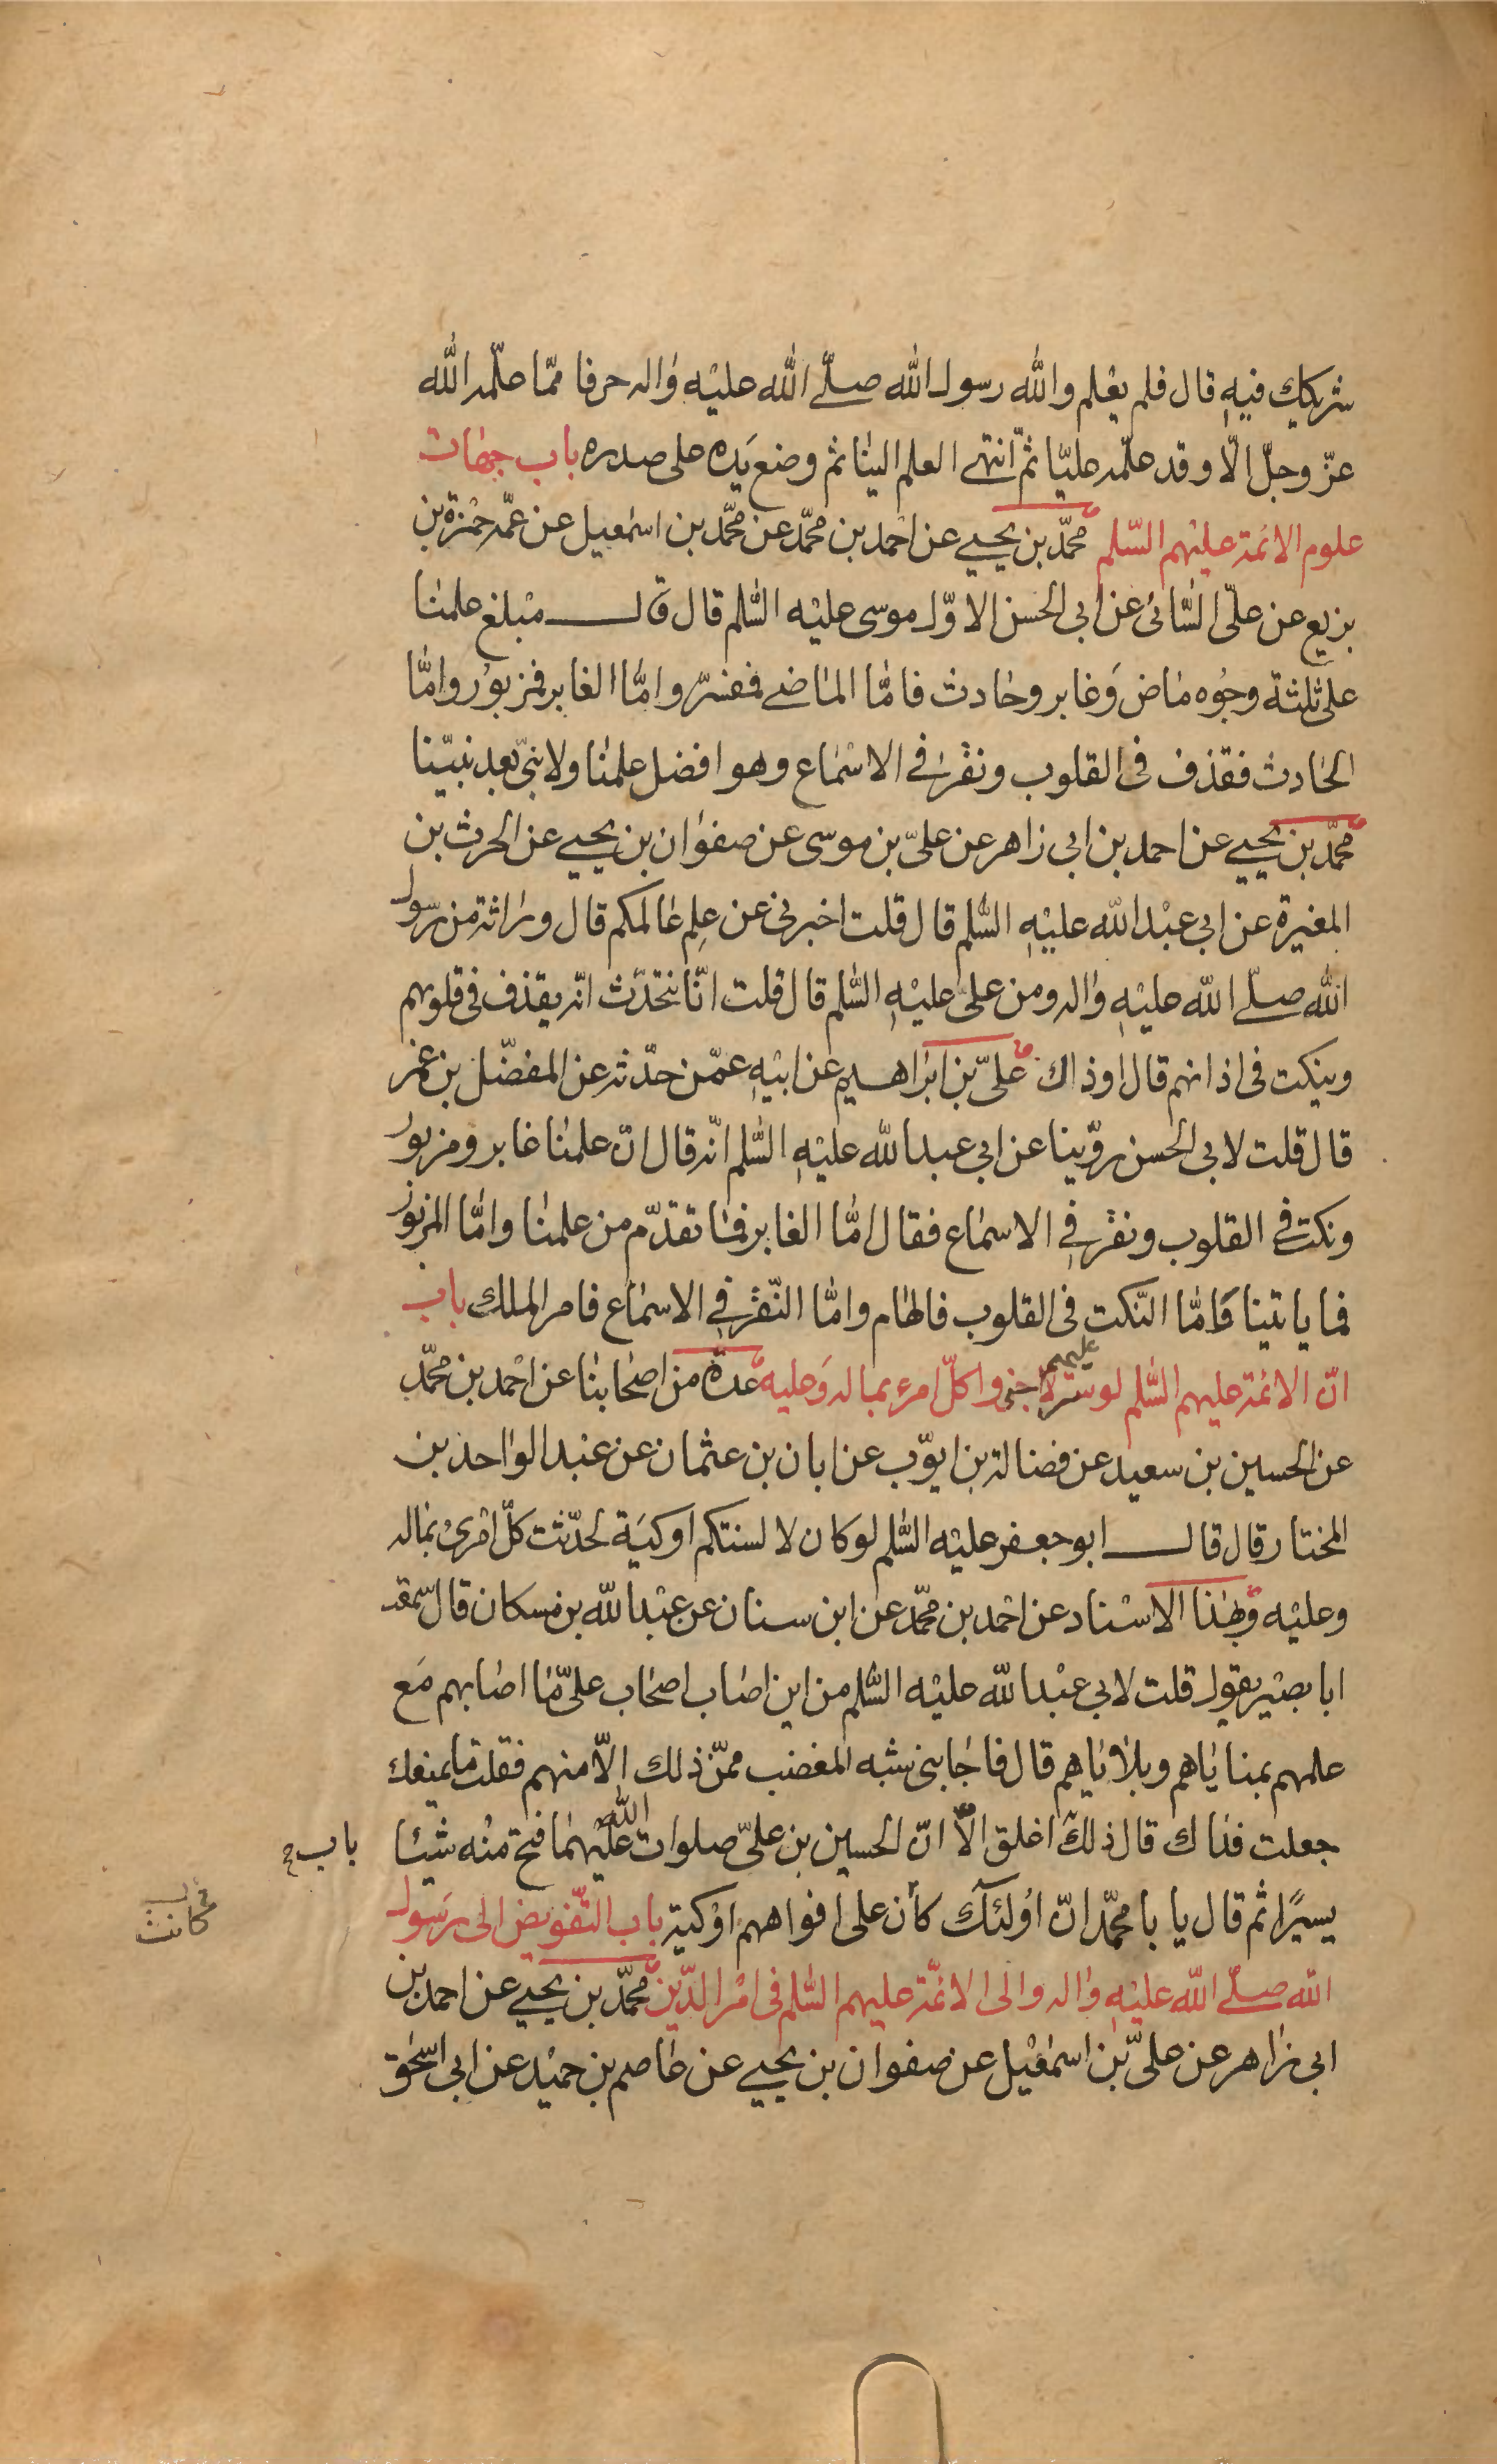 شريكك فيه قال فلم يعلم والله رسول الله صلّى الله عليه واله حرفا ممّا علّمه الله
عزّ وجلّ الّا وقد علّمه عليّا ثمّ انتهى العلم الينا ثم وضع يَده على صدره باب جهات
علوم الائمة عليهم السّلم محمّد بن يحيى عن احمد بن محمّد عن محمّد بن اسمٰعيل عن عمّه حمْزة بن
بزيع عن علىّ السّائى عن ابى الحسن الاوّل موسى عليْه السّٰلم قال قال مبْلغ علمنا
على ثلٰثة وجُوه ماض وَغابر وحادث فامّا الماضى فمفسّر وامّا الغابر فمزبوُر وامّا
الحادث فقذف فى القلوب ونقر فى الاسْماع وهو افضل علمنا ولا نبىّ بعد نبيّنا
محمّد بن يحيى عن احمد بن ابى زاهر عن علىّ بن موسى عن صفوان بن يحيى عن الحرث بن
المغيرة عن ابى عبْد الله عليْهِ السّٰلم قال قلت اخبرنى عن عِلم عٰالمكم قال وراثة من رسول
الله صلّى الله عليْهِ واله ومن علىّ عليْهِ السّٰلم قال قلت انّا نتحدّث انّه يقذف فى قلوبهم
وينكت فى اذانهم قال اوذاك علىّ بن ابراهيم عن ابيْهِ عمّن حدّثه عن المفضّل بن عمر
قال قلت لابى الحسن روّينا عن ابى عبد الله عليْهِ السّٰلم انّه قال انّ علمنا غابر ومزبور
ونكت فى القلوب ونقر فى الاسماع فقال امّا الغابر فما تقدّم من علمنا وامّا المزبور
فما ياتينا وَامّا النّكت فى القلوب فالهام وامّا النّقر فى الاسماع فامر الملك باب
انّ الائمة عليهم السّلم لو ستر عليهم لاخبروا كلّ امرء بما له وَعليه عدّة من اصحابنا عن احْمد بن محمّد
عن الحسين بن سعيد عن فضالة بن ايوّب عن ابان بن عثمان عن عبْد الواحد بن
المختار قال قال ابو جعفر عليْه السّٰلم لو كان لالسنتكم اوكيَة لحدّثت كلّ امْرئ بماله
وعليْه وبهٰذا الاسْناد عن احْمد بن محمّد عن ابن سنان عن عبْد الله بن مسكان قال سمعت
ابا بصيْر يقول قلت لابى عبْد الله عليْه السّٰلم من اين اصاب اصحاب علىّ مٰا اصٰابهم مَع
علمهم بمناياهم وبلاياهم قال فاجابنى شبْه المغضب ممّن ذلك الّا منهم فقلت ما يمنعك
جعلت فداك قال ذلك اغلق الّا انّ الحسين بن علىّ صلوات الله عليْهما فتح منْه شيئا
باب
يسيرًا ثم قال يا با محمّد انّ اوُلئك كأن على افواههم اوْكية باب التّفويض الى رسول
كانت
الله صلّى الله عليْهِ واله والى الائمّة عليهم السّٰلم فى امْر الدّين محمّد بن يحيى عن احمد بن
ابى زاهر عن علىّ بن اسمٰعيْل عن صفوان بن يحيى عن عاصم بن حميْد عن ابى اسحٰق